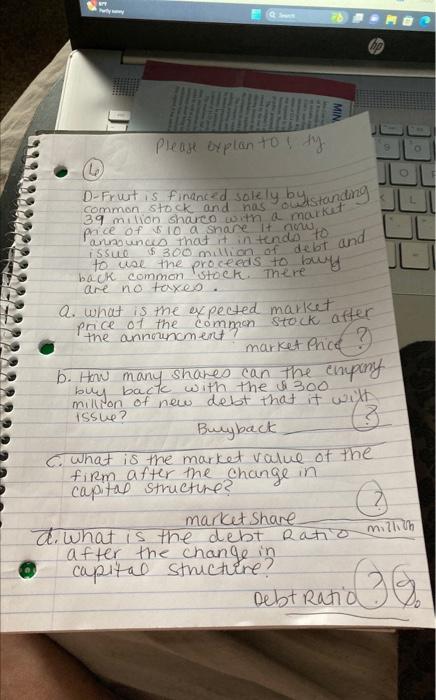 Partly sunny
Search
hp
MIN
Please explan to ! ty
6
D-Fruit is financed solely by
common stock and has outstanding
39 million shares with a market
price of $10 a share. It now
announces that it intends to
issue $300 million of debt and
to use the proceeds to buy
back common stock. There
are no taxes.
a. what is the expected market
price of the common stock after
the announcment?
market Price ?
b. How many shares can the company
buy back with the $300
million of new debt that it will
issue?
?
Buyback
c. what is the market value of the
firm after the change in
capital structure?
?
market share million
d. what is the debt Ratio
after the change in
capital structure?
Debt Ratio ? %